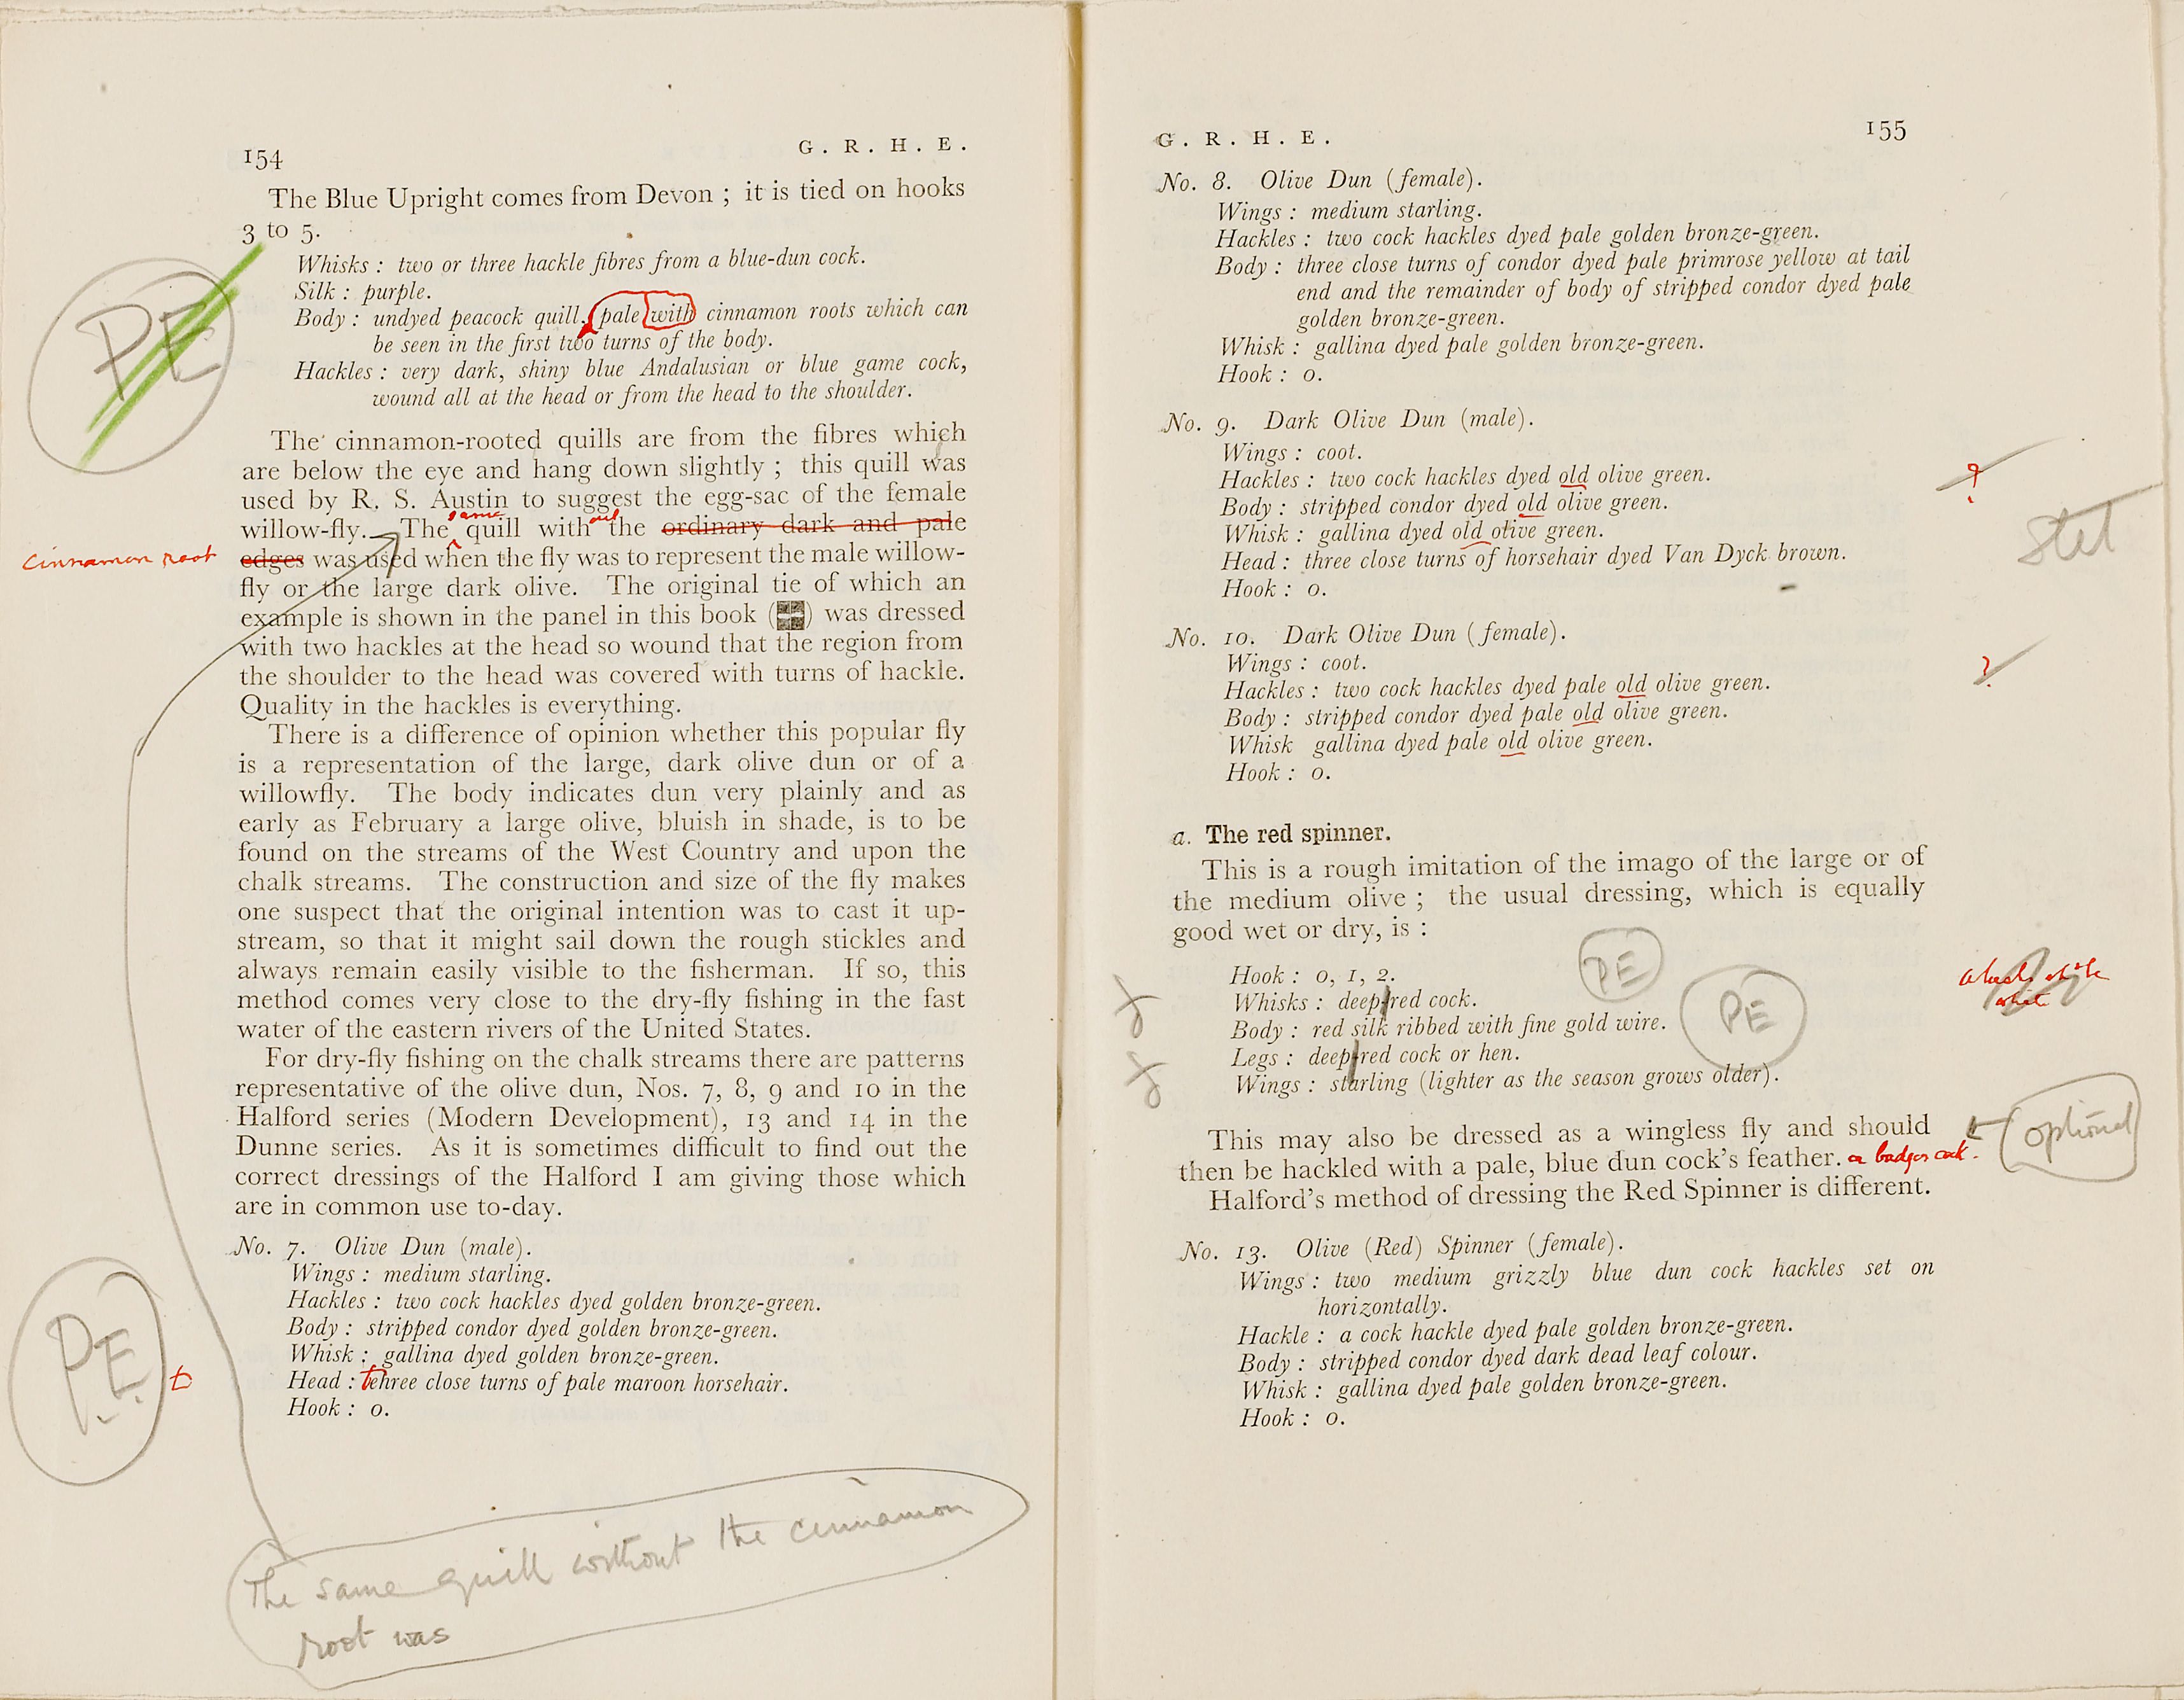 154
G. R. H. E.
The Blue Upright comes from Devon ; it is tied on hooks
3 to 5.
Whisks : two or three hackle fibres from a blue-dun cock.
Silk : purple.
Body : undyed peacock quill, pale with cinnamon roots which can
be seen in the first two turns of the body.
Hackles : very dark, shiny blue Andalusian or blue game cock,
wound all at the head or from the head to the shoulder.
PE
The cinnamon-rooted quills are from the fibres which
are below the eye and hang down slightly ; this quill was
used by R. S. Austin to suggest the egg-sac of the female
same out
willow-fly. The quill with the ordinary dark and pale
cinnamon root
edges was used when the fly was to represent the male willow-
fly or the large dark olive. The original tie of which an
example is shown in the panel in this book ( ) was dressed
with two hackles at the head so wound that the region from
the shoulder to the head was covered with turns of hackle.
Quality in the hackles is everything.
There is a difference of opinion whether this popular fly
is a representation of the large, dark olive dun or of a
willowfly. The body indicates dun very plainly and as
early as February a large olive, bluish in shade, is to be
found on the streams of the West Country and upon the
chalk streams. The construction and size of the fly makes
one suspect that the original intention was to cast it up-
stream, so that it might sail down the rough stickles and
always remain easily visible to the fisherman. If so, this
method comes very close to the dry-fly fishing in the fast
water of the eastern rivers of the United States.
For dry-fly fishing on the chalk streams there are patterns
representative of the olive dun, Nos. 7, 8, 9 and 10 in the
Halford series (Modern Development), 13 and 14 in the
Dunne series. As it is sometimes difficult to find out the
correct dressings of the Halford I am giving those which
are in common use to-day.
No. 7. Olive Dun (male).
Wings : medium starling.
Hackles : two cock hackles dyed golden bronze-green.
Body : stripped condor dyed golden bronze-green.
Whisk : gallina dyed golden bronze-green.
Head : three close turns of pale maroon horsehair.
Hook : o.
PE
t
The same quill without the cinnamon
root was
G. R. H. E.
155
No. 8. Olive Dun (female).
Wings : medium starling.
Hackles : two cock hackles dyed pale golden bronze-green.
Body : three close turns of condor dyed pale primrose yellow at tail
end and the remainder of body of stripped condor dyed pale
golden bronze-green.
Whisk : gallina dyed pale golden bronze-green.
Hook : o.
No. 9. Dark Olive Dun (male).
Wings : coot.
Hackles : two cock hackles dyed old olive green.
?
Body : stripped condor dyed old olive green.
Whisk : gallina dyed old olive green.
Stet
Head : three close turns of horsehair dyed Van Dyck brown.
Hook : o.
No. 10. Dark Olive Dun (female).
Wings : coot.
?
Hackles : two cock hackles dyed pale old olive green.
Body : stripped condor dyed pale old olive green.
Whisk gallina dyed pale old olive green.
Hook : o.
a. The red spinner.
This is a rough imitation of the imago of the large or of
the medium olive ; the usual dressing, which is equally
good wet or dry, is :
PE
Hook : 0, 1, 2.
Whisks : deep-red cock.
PE
Body : red silk ribbed with fine gold wire.
Legs : deep-red cock or hen.
Wings : starling (lighter as the season grows older).
This may also be dressed as a wingless fly and should
optional
then be hackled with a pale, blue dun cock's feather. a badger cock.
Halford's method of dressing the Red Spinner is different.
No. 13. Olive (Red) Spinner (female).
Wings : two medium grizzly blue dun cock hackles set on
horizontally.
Hackle : a cock hackle dyed pale golden bronze-green.
Body : stripped condor dyed dark dead leaf colour.
Whisk : gallina dyed pale golden bronze-green.
Hook : o.